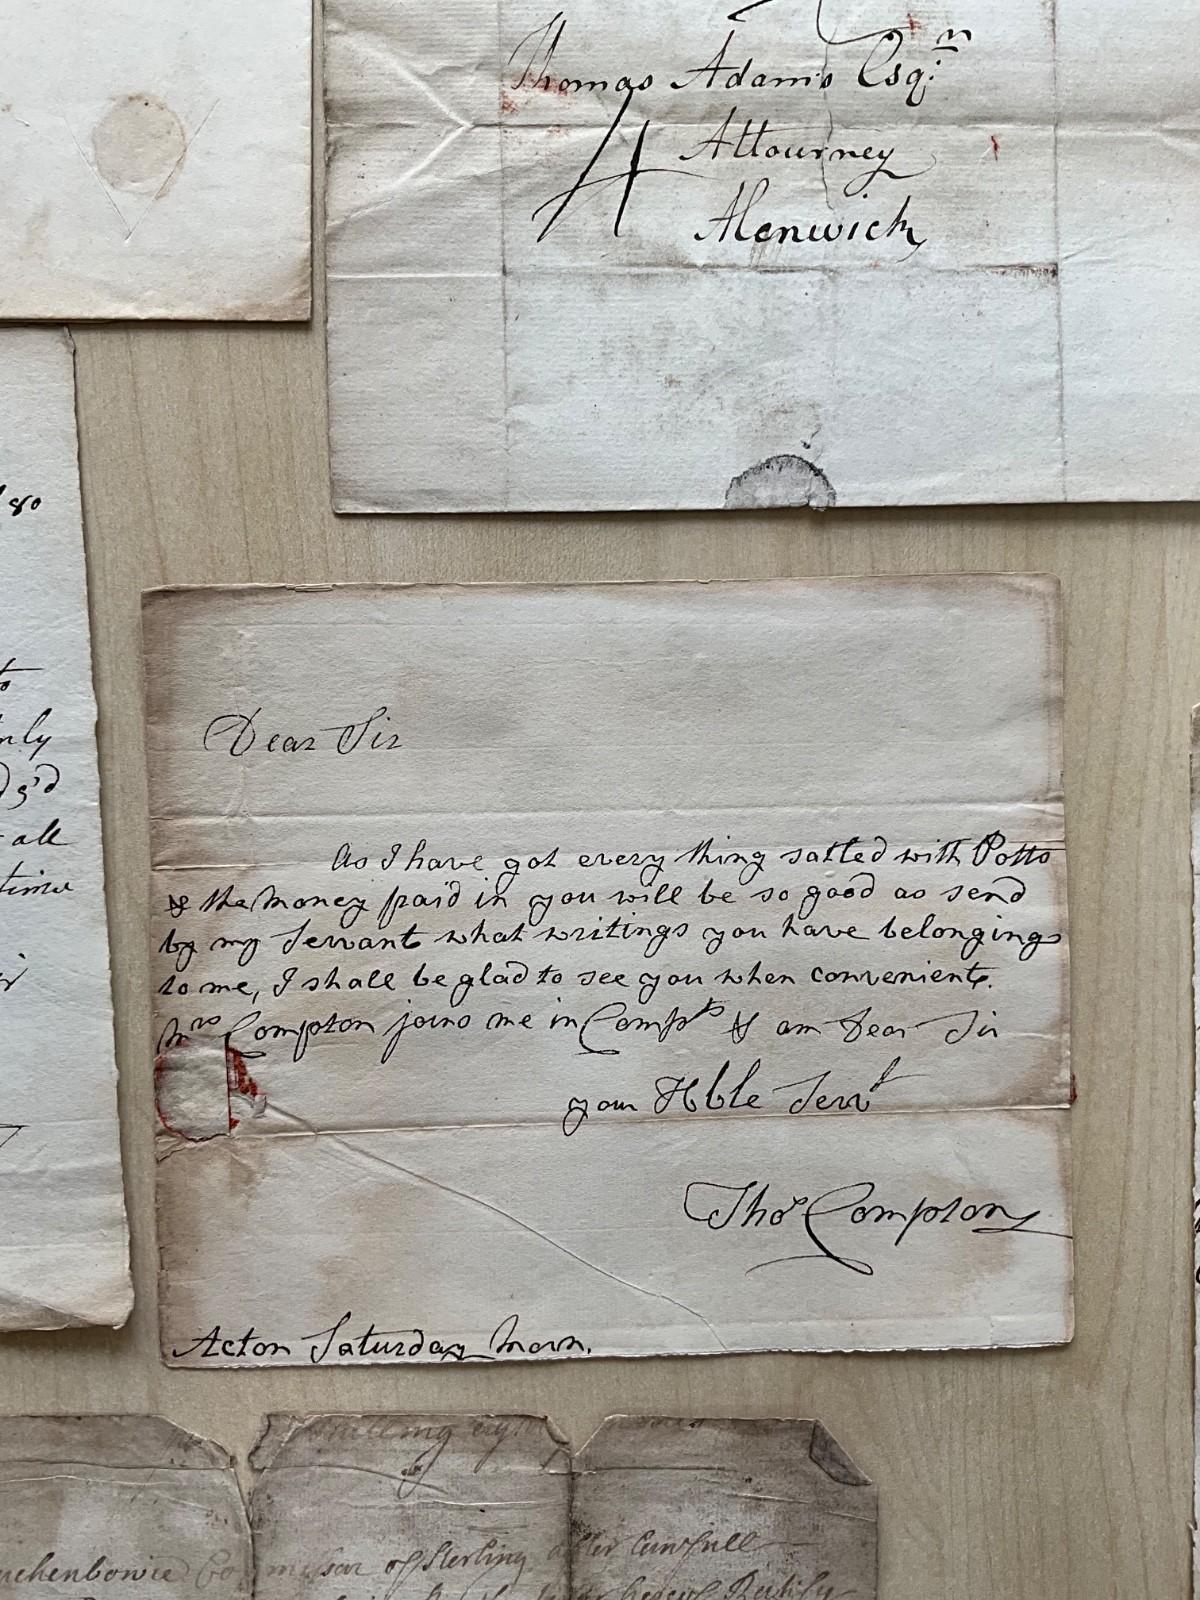 Thomas Adams Esqr.
4
Attourney
Alenwick
80
to
nly
all
time
Dear Sir
As I have got every thing satled with Potts
& the Money paid in you will be so good as send
by my Servant what writings you have belongings
to me, I shall be glad to see you when convenient.
Mrs Compton joins me in Compts & am Dear Sir
your Hble Servt
Thos Compton
Acton Saturday Morn.
of Sterling after